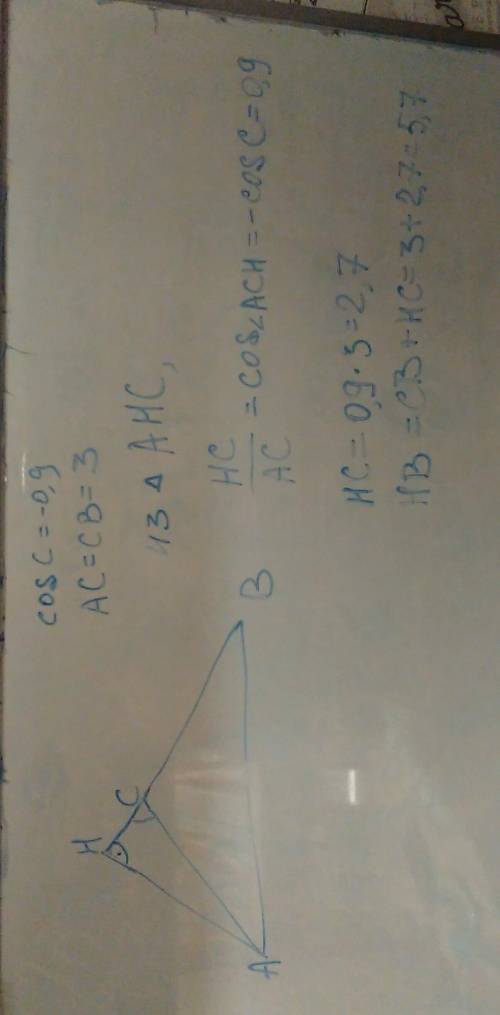 cos C = -0,9
AC = CB = 3
из ▵ AHC,
HC/AC = cos∠ACH = -cos C = 0,9
HC = 0,9 · 3 = 2,7
HB = CB + HC = 3 + 2,7 = 5,7
H
C
A
B